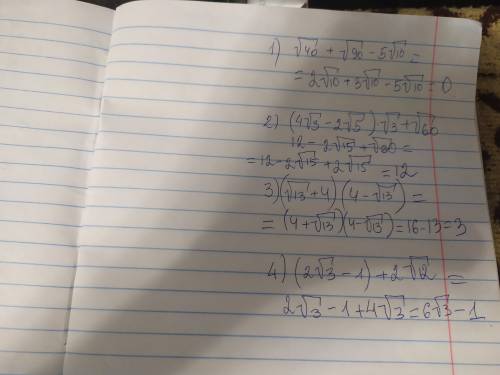 1) √40 + √90 - 5√10 =
= 2√10 + 3√10 - 5√10 = 0
2) (4√3 - 2√5) √3 + √60
12 - 2√15 + √60 =
= 12 - 2√15 + 2√15 = 12
3) (√13 + 4) (4 - √13) =
= (4 + √13) (4 - √13) = 16 - 13 = 3
4) (2√3 - 1) + 2√12 =
2√3 - 1 + 4√3 = 6√3 - 1